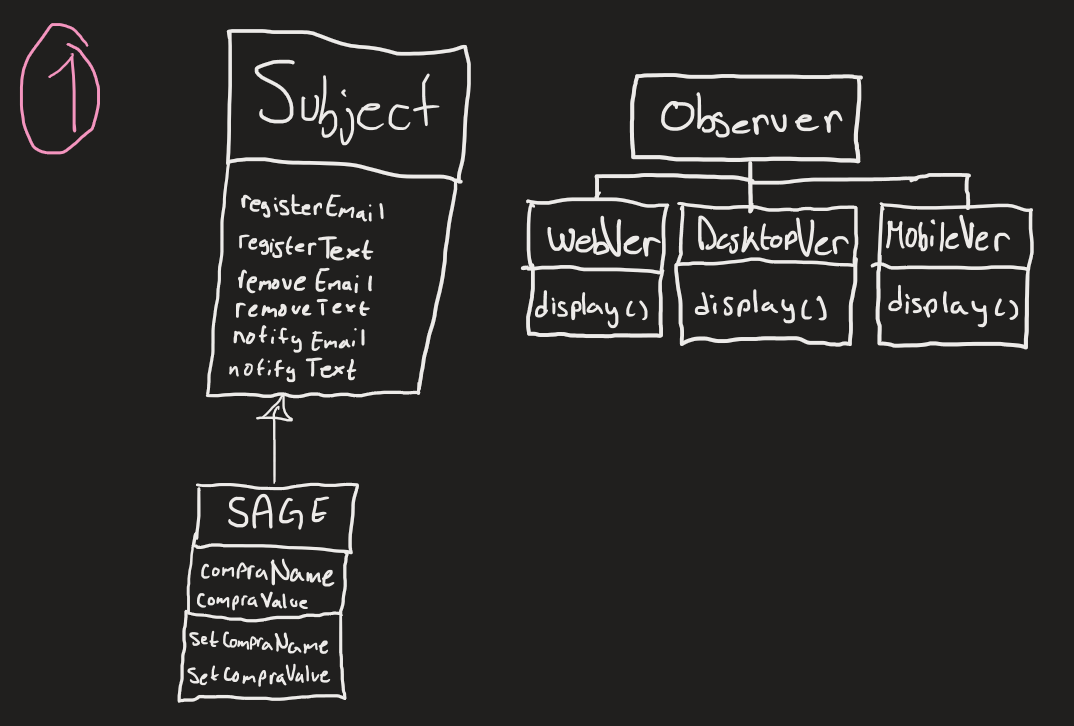 1
Subject
registerEmail
registerText
remove Email
removeText
notify Email
notify Text
SAGE
compraName
compraValue
setCompraName
setCompraValue
Observer
WebVer
display()
DesktopVer
display()
MobileVer
display()